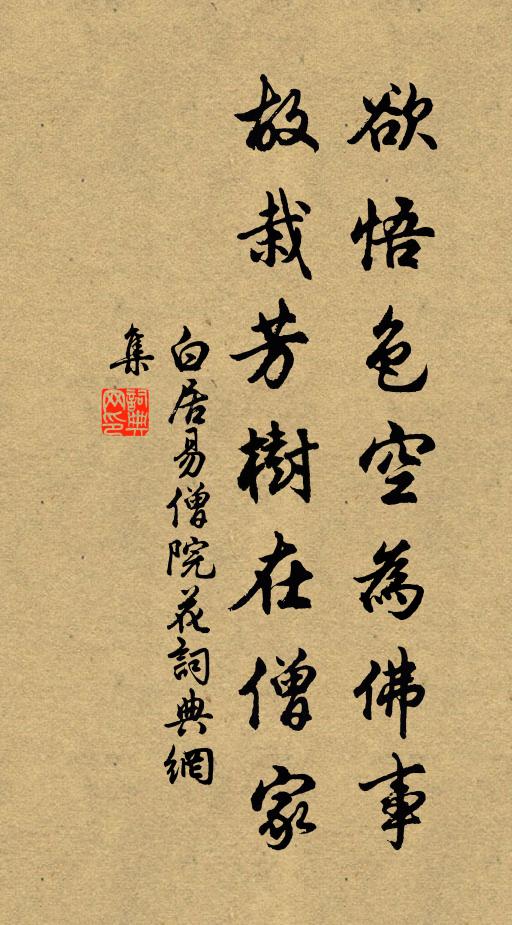 欲悟色空為佛事
故栽芳樹在僧家
白居易僧院花詞典網
集
詞典
网印